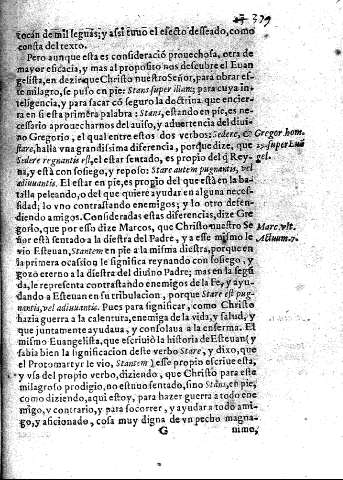 379
tocan de mil leguas; y assi tuuo el efecto desseado, como
consta del texto.
Pero aunque esta es consideració prouechosa, otra de
mayor eficacia, y mas al proposito nos descubre el Euan
gelista, en dezir que Christo nuestro Señor, para obrar es-
te milagro, se puso en pie: Stans super illam; para cuya in-
teligencia, y para sacar cō seguro la doctrina que encier-
ra en si esta primera palabra: Stans, estando en pie, es ne-
cessario aprouecharnos del auiso, y aduertencia del diui-
no Gregorio, el qual entre estos dos verbos: Sedere, &
stare, halla vna grandissima diferencia, porque dize, que
Sedere regnantis est, el estar sentado, es propio del q̄ Rey-
na, y está con sosiego, y reposo: Stare autem pugnantis, vel
adiuuantis. El estar en pie, es propio del que está en la ba-
talla peleando, o del que quiere ayudar en alguna neces-
sidad; lo vno contrastando enemigos; y lo otro defen-
diendo amigos. Consideradas estas diferencias, dize Gre-
gorio, que por esso dize Marcos, que Christo nuestro Se-
ñor está sentado a la diestra del Padre, y a esse mismo le
vio Esteuan, Stantem en pie a la misma diestra, porque en
la primera ocasion le significa reynando con sosiego, y
gozo eterno a la diestra del diuino Padre; mas en la segū
da, le representa contrastando enemigos de la Fe, y ayu-
dando a Esteuan en su tribulacion, porque Stare est pug-
nantis, vel adiuuantis. Pues para significar, como Christo
hazia guerra a la calentura, enemiga de la vida, y salud, y
que juntamente ayudaua, y consolaua a la enferma. El
mismo Euangelista, que escriuiò la historia de Esteuan (y
sabia bien la significacion deste verbo Stare, y dixo, que
el Protomartyr le vio, Stantem) esse propio escriue està,
y vsa del propio verbo, diziendo, que Christo para este
milagroso prodigio, no estuuo sentado, sino Stans, en pie,
como diziendo, aqui estoy, para hazer guerra a todo ene
migo, y contrario, y para socorrer, y ayudar a todo ami-
go, y aficionado, cosa muy digna de vn pecho magna-
G nimo,
Gregor. hom.
29. super Euā
gel.
Marc. vlt.
Actuum. 7.